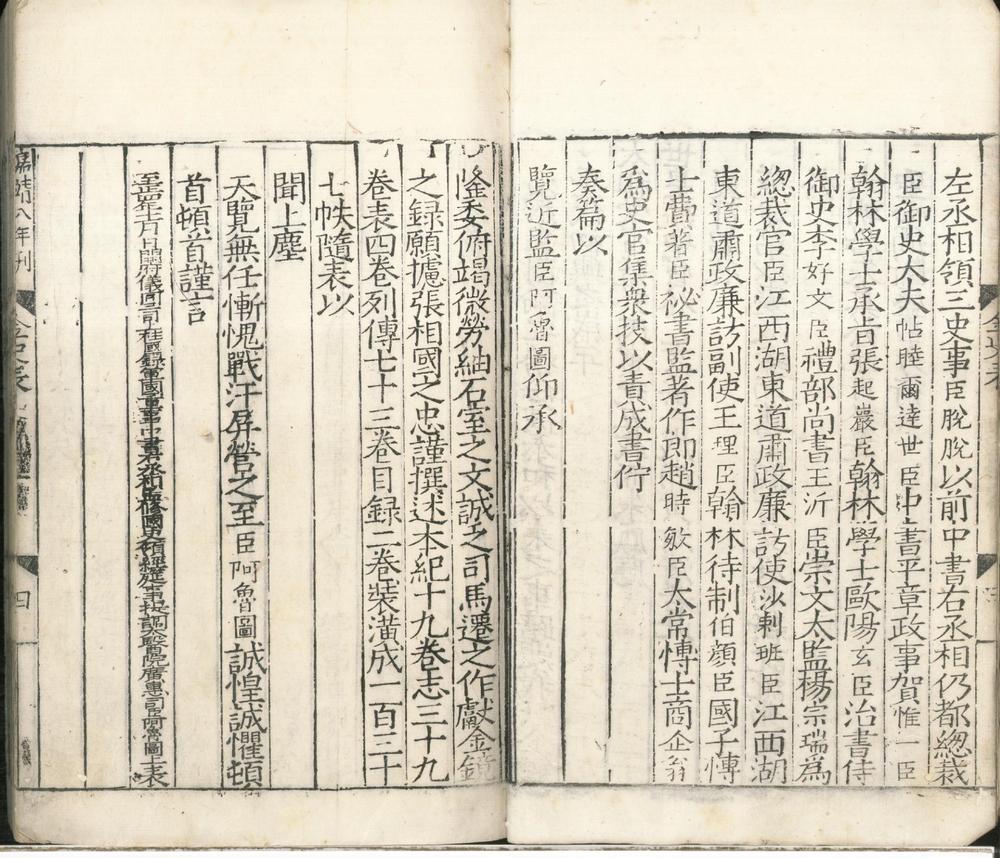 左丞相領三史事臣脫脫以前中書右丞相仍都總裁
臣御史大夫帖睦爾達世臣中書平章政事賀惟一臣
翰林學士承旨張起巖臣翰林學士歐陽玄臣治書侍
御史李好文臣禮部尚書王沂臣崇文太監楊宗瑞為
總裁官臣江西湖東道肅政廉訪使沙剌班臣江西湖
東道肅政廉訪副使王理臣翰林待制伯顏臣國子博
士費著臣祕書監著作郎趙時敏臣太常博士商企翁
為史官集衆技以責成書佇
奏篇以
覽近監臣阿魯圖仰承
隆委俯竭微勞紬石室之文誠乏司馬遷之作獻金鏡
之録願攄張相國之忠謹撰述本紀十九卷志三十九
卷表四卷列傳七十三卷目録二卷裝潢成一百三十
七帙隨表以
聞上塵
天覽無任慚愧戰汗屏營之至臣阿魯圖誠惶誠懼頓
首頓首謹言
至正四年十一月日開府儀同三司上柱國録軍國重事中書右丞相監修國史領經筵事提調太醫院廣惠司臣阿魯圖上表
嘉靖八年刊
金史表
四